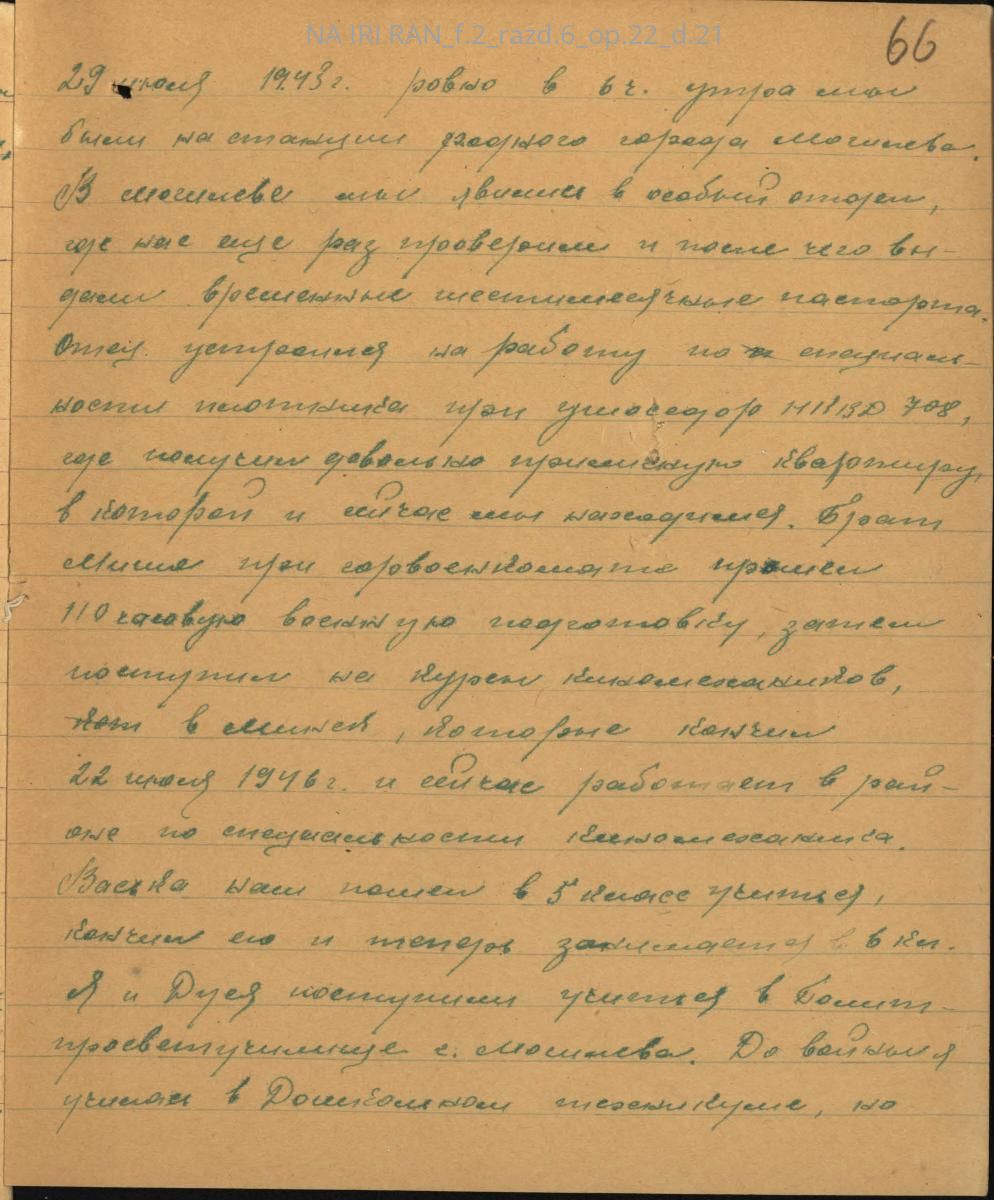 NA IRI RAN_f.2_razd.6_op.22_d.21
66
29 июля 1943 г. ровно в 6 ч. утра мы
были на станции родного города Могилева.
В Могилеве мы явились в особый отдел,
где нас еще раз проверили и после чего вы-
дали временные шестимесячные паспорта.
Отец устроился на работу по специаль-
ности плотника при ушосдор НКВД 708,
где получил довольно приличную квартиру,
в которой и сейчас мы находимся. Брат
Миша при горвоенкомате прошел
110 часовую военную подготовку, затем
поступил на курсы киномехаников,
в Минск, которые кончил
22 июля 1946 г. и сейчас работает в рай-
оне по специальности киномеханика.
Васька наш пошел в 5 класс учиться,
кончил его и теперь занимается в 6 кл.
Я и Дуся поступили учиться в Полит-
просветучилище г. Могилева. До войны я
училась в Дошкольном техникуме, но